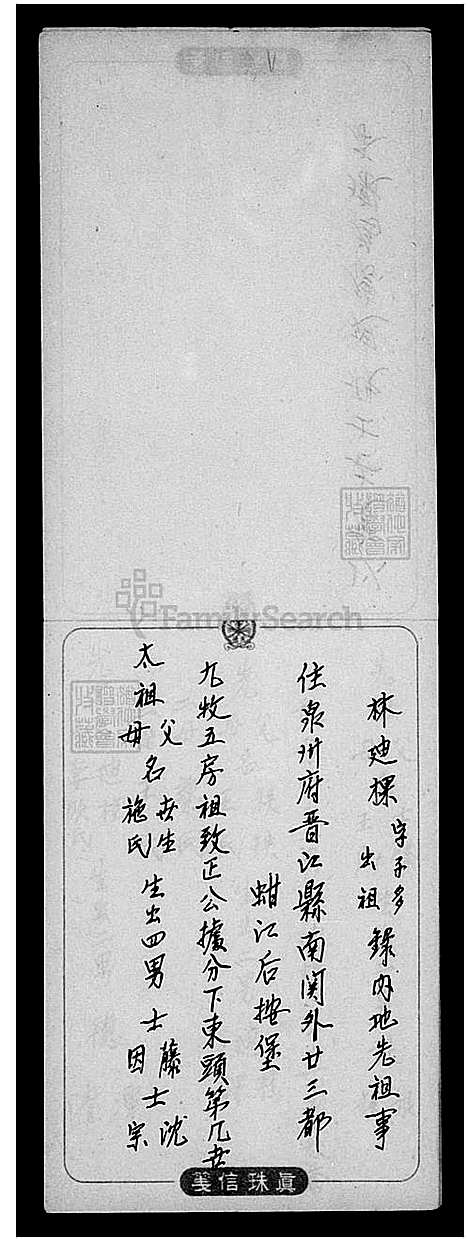 林廸探 字子多 出祖 錄內地先祖事
住泉州府晋江縣南関外廿三都
蚶江后按堡
九牧五房祖致正公據分下東頭第几世
太祖 父名世生
母 施氏 生出四男 士藤 士沈
因 宗
義信珠眞
FamilySearch